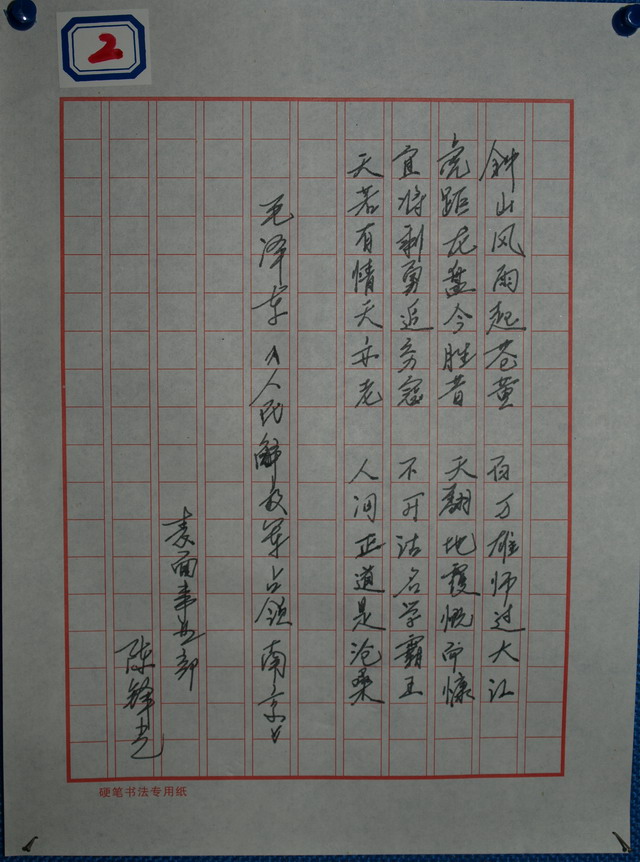 2
钟山风雨起苍黄 百万雄师过大江
虎距龙盘今胜昔 天翻地覆慨而慷
宜将剩勇追穷寇 不可沽名学霸王
天若有情天亦老 人间正道是沧桑
毛泽东《人民解放军占领南京》
表面事业部
陈书
硬笔书法专用纸